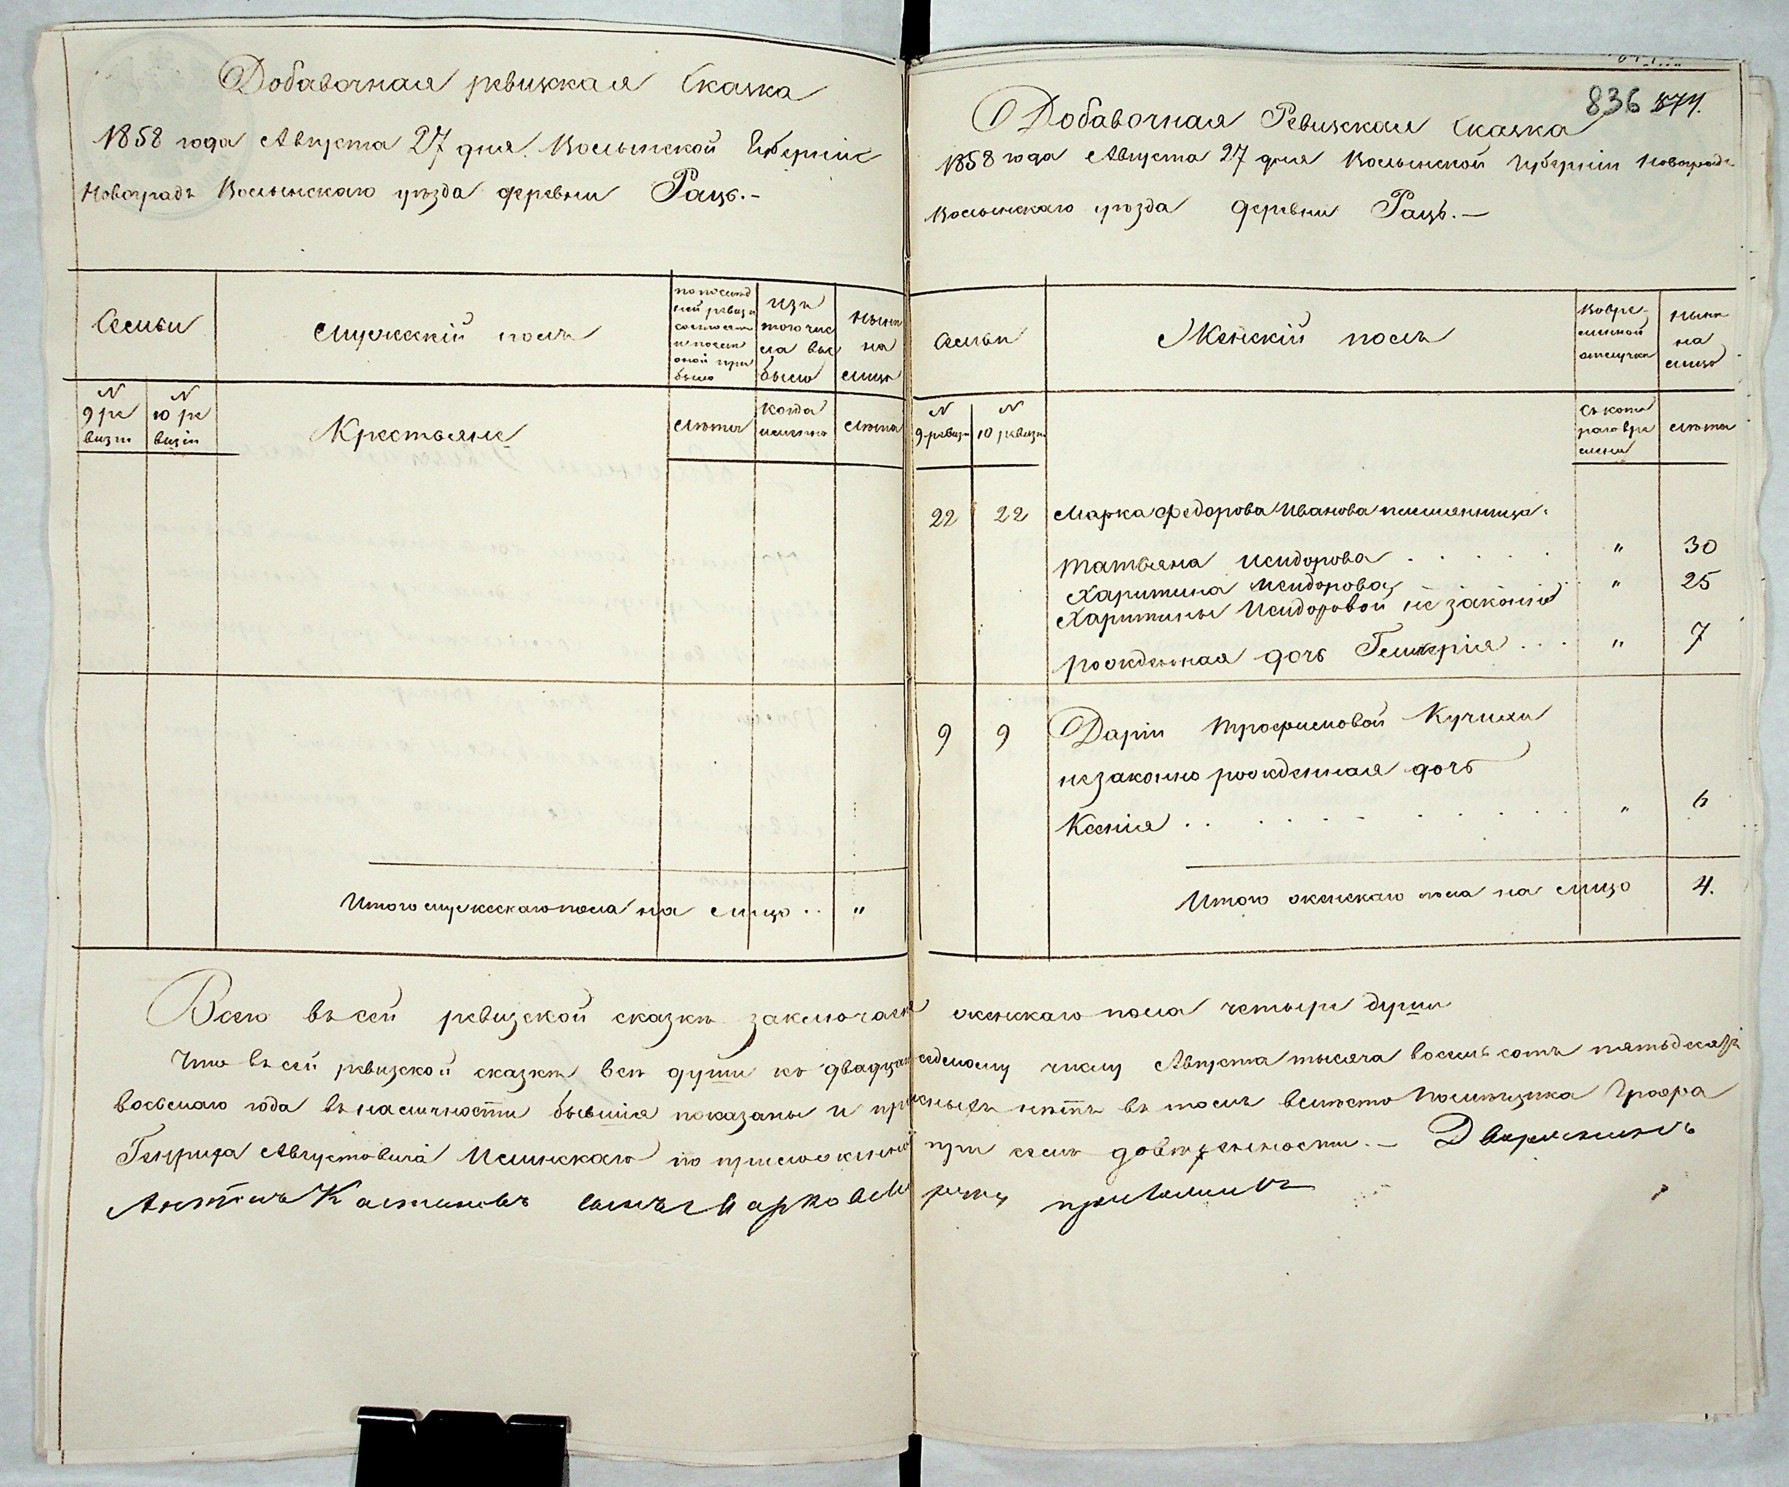 Добавочная ревизская Сказка
1858 года Августа 27 дня. Волынской Губерніи
Новоградъ Волынскаго уѣзда деревни Рацъ.-
Семьи
Мужескій полъ
по послѣд
ней ревизіи
состояло
и послѣ
оной при
было
изъ
того чис
ла вы
было
Нынѣ
на
лицо
N
9 ре
визіи
N
10 ре
визіи
Крестьяне
Лѣта
Когда
именно
Лѣта
Итого мужескаго пола на лицо .. "
836 874.
Добавочная Ревизская Сказка
1858 года Августа 27 дня Волынской Губерніи Новоградъ-
Волынскаго уѣзда деревни Рацъ.—
Семьи
Женскій полъ
Во вре-
менной
отлучкѣ
Нынѣ
на
лицо
N
9 ревизіи
N
10 ревизіи
Съ кото
раго вре
мени
Лѣта
22 22 Марка Федорова Иванова племянница:
Татьяна Исидорова . . . . . " 30
Харитина Исидорова " 25
Харитины Исидоровой не законно
рожденная дочь Гликерія . . . " 7
9 9 Даріи Трофимовой Кучихи
незаконно рожденная дочь
Ксенія . . . . . . . . . . " 6
Итого женскаго пола на лицо 4.
Всего въ сей ревизской сказкѣ заключается женскаго пола четыре души
Что въ сей ревизской сказкѣ всѣ души къ двадцать седьмому числу Августа тысяча восемь сотъ пятьдесятъ
восьмаго года въ наличности бывшія показаны и прописныхъ нѣтъ въ томъ вмѣсто помѣщика Графа
Генриха Августовича Илинскаго по приложенной при семъ довѣренности.— Дворянинъ
Антонъ сынъ руку приложилъ